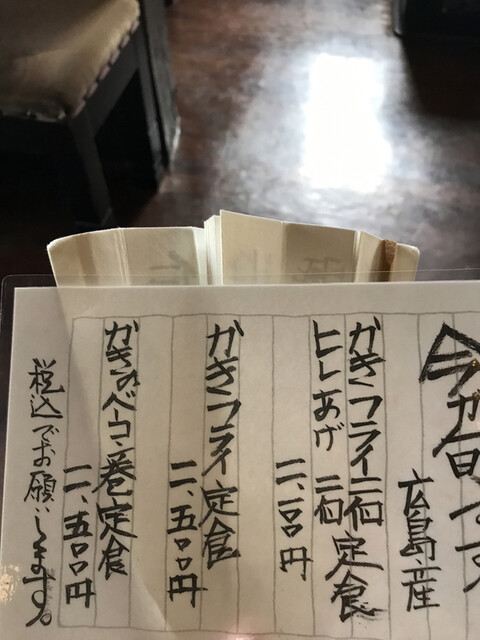 今が旬です
広島産
かきフライ二個
ヒレあげ 二個 定食
二、一〇〇円
かきフライ定食
二、五〇〇円
かきのベーコン巻定食
二、五〇〇円
税込でお願いします。